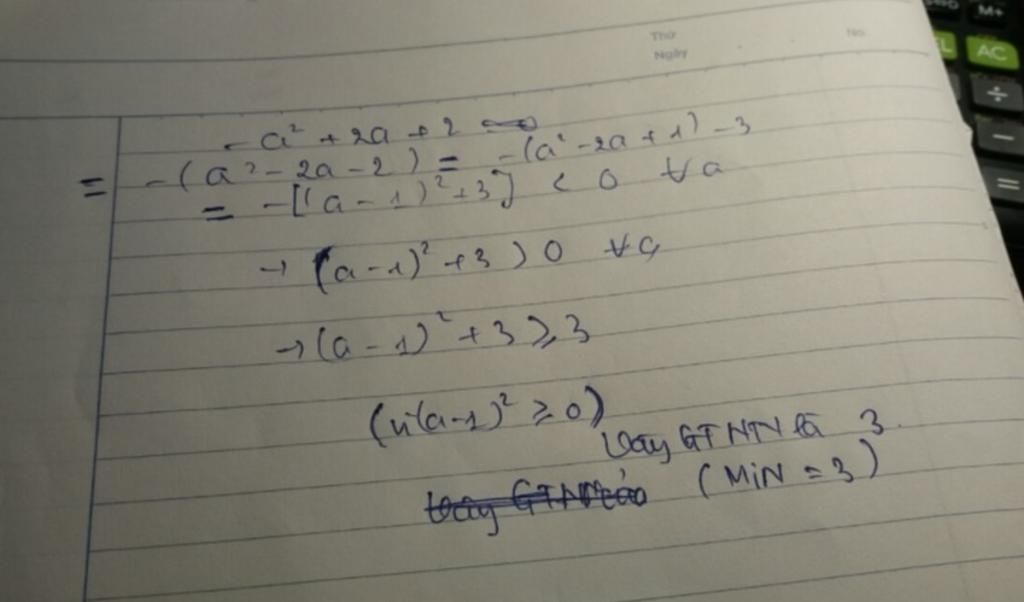 Thứ
No.
Ngày
M+
AC
÷
−
=
- a² + 2a + 2
= -(a² - 2a - 2) = -(a² - 2a + 1) - 3
= -[(a - 1)² + 3] < 0 ∀a
→ (a - 1)² + 3 > 0 ∀a
→ (a - 1)² + 3 ≥ 3
(vì (a-1)² ≥ 0)
Vậy GTNN là 3.
(MiN = 3)